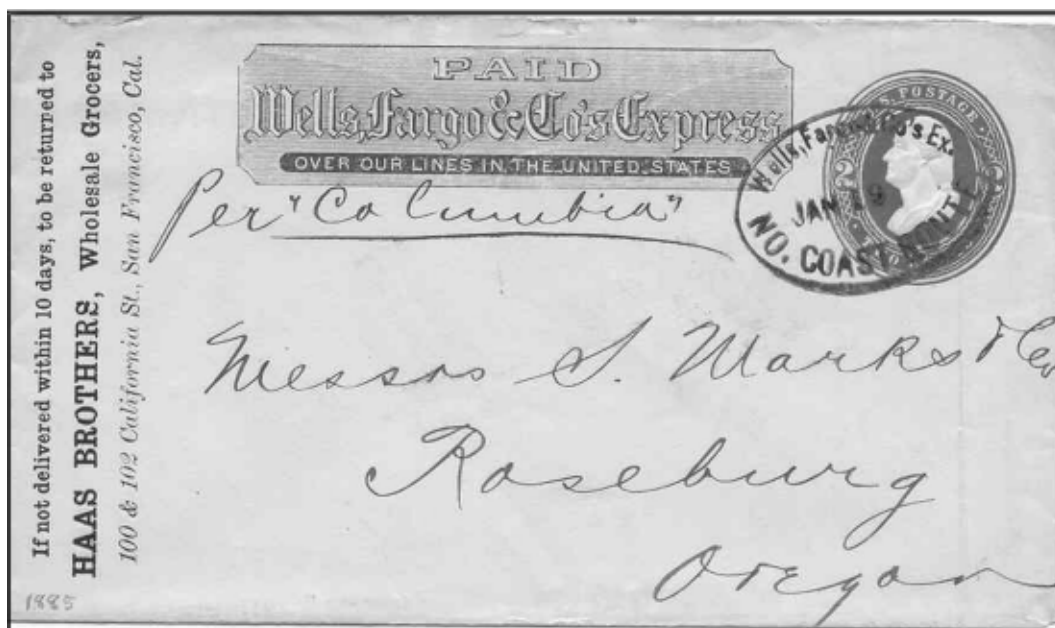 If not delivered within 10 days, to be returned to
HAAS BROTHERS, Wholesale Grocers,
100 & 102 California St., San Francisco, Cal.
PAID
Wells, Fargo & Co's Express
OVER OUR LINES IN THE UNITED STATES
U.S. POSTAGE
Wells, Fargo & Co's Ex.
JAN
NO. COAST ROUTE
Per "Columbia"
Messrs S. Marks & Co
Roseburg
Oregon
1885